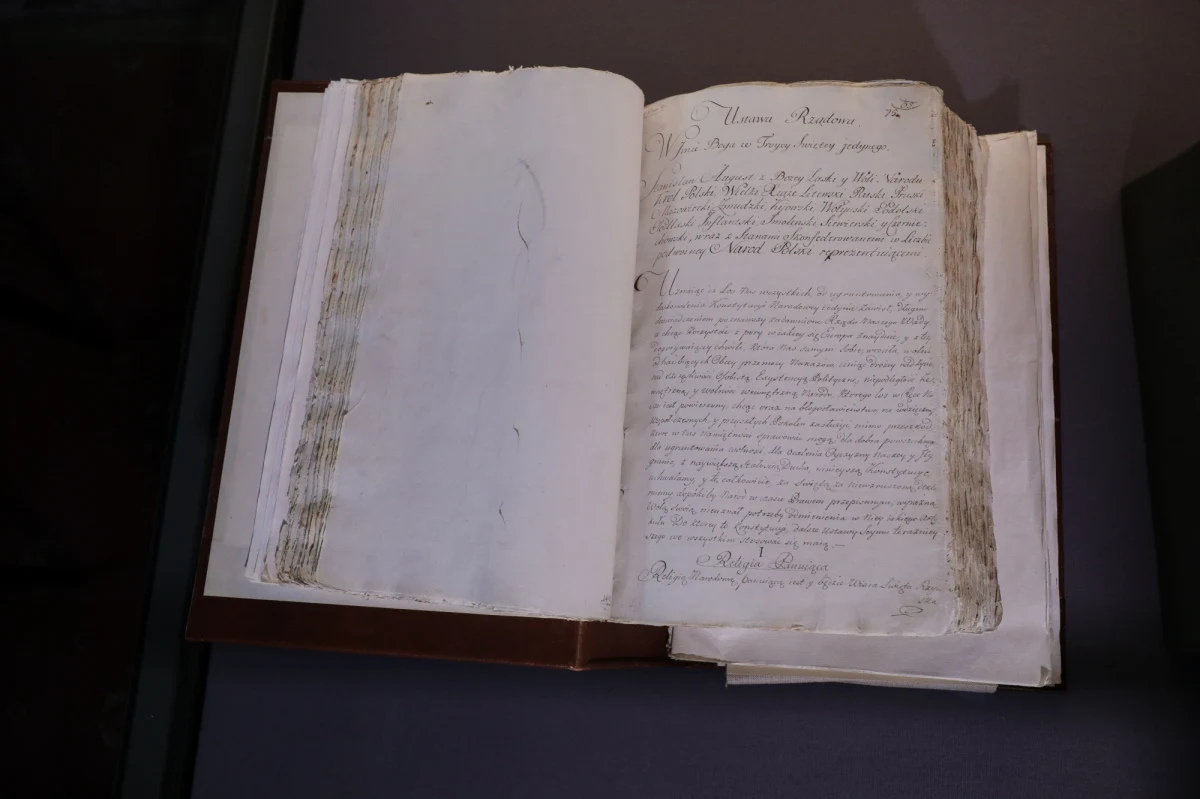 Ustawa Rządowa.
W Imię Boga w Troycy Swiętey jedynego.
Stanisław August z Bożey Łaski y Woli Narodu
Król Polski, Wielki Xiąże Litewski, Ruski, Pruski
Mazowiecki, Zmudzki, Kijowski, Wołyński, Podolski
Podlaski, Inflantski, Smolenski, Siewierski, y Czernie-
chowski, wraz z Stanami Skonfederowanemi w Liczbie
podwóyney Naród Polski reprezentuiącemi.
Uznaiąc iż Los Nas wszystkich, od ugruntowania, y wy-
doskonalenia Konstytucyi Narodowey iedynie zawisł, długim
doswiadczeniem poznawszy zadawnione Rządu Naszego Wady
a chcąc korzystać z pory w iakiey się Europa znayduie, y z tey
dogorywaiącey chwili, która Nas samym Sobie wróciła, wolni
od hańbiących Obcey przemocy Nakazów, ceniąc drożey nad życie,
nad szczęśliwość Osobistą, Exystencyą Polityczną, niepodległość ze-
wnętrzną y wolność wewnętrzną Narodu, którego los w Ręce Na-
sze iest powierzony, chcąc oraz na błogosławieństwo, na wdzięczność
współczesnych y przyszłych Pokoleń zasłużyć, mimo przeszkód
które w Nas Namiętności sprawować mogą, dla dobra powszechnego
dla ugruntowania wolności, dla Ocalenia Oyczyzny Naszey y Jey
Granic, z naywiększą stałością Ducha, ninieyszą Konstytucyę
uchwalamy, y tę całkowicie za Swiętą, za Niewzruszoną, dekla-
ruiemy, dopókiby Naród w czasie Prawem przepisanym, wyraźną
Wolą swoią nieuznał potrzeby odmienienia w Niey iakiego Arty-
kułu. Do którey to Konstytucyi dalsze Ustawy Seymu teraźniey-
szego we wszystkim stosować się maią.—
I
Religia Panuiąca
Religią Narodową panuiącą iest y będzie Wiara Swięta Rzy-